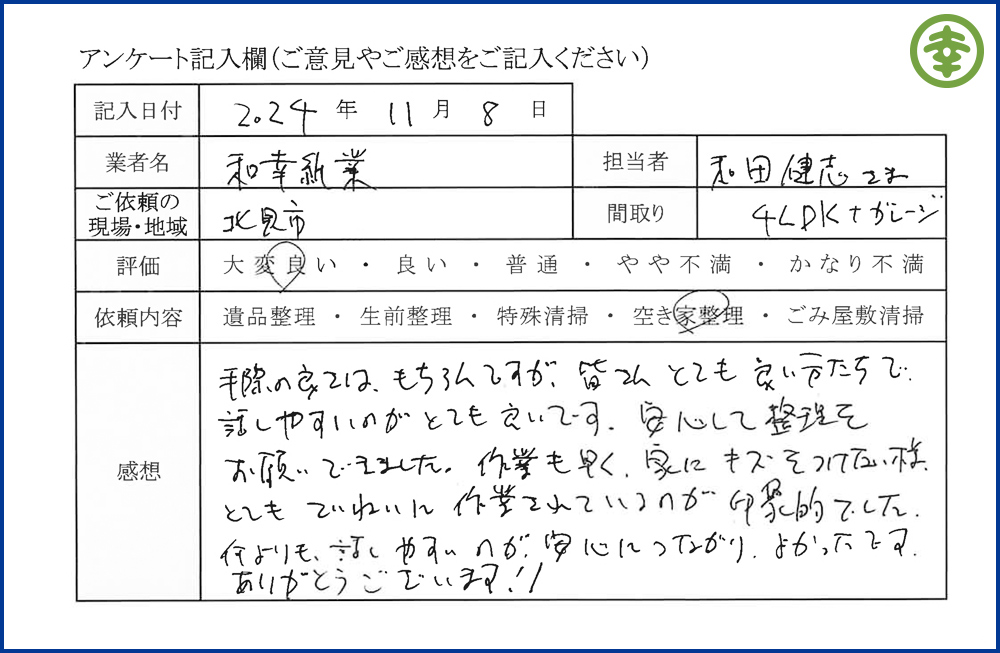 幸
アンケート記入欄(ご意見やご感想をご記入ください)
記入日付 2024年 11月 8日
業者名 和幸紙業 担当者 和田健志さま
ご依頼の現場・地域 北見市 間取り 4LDK+ガレージ
評価 大変良い ・ 良い ・ 普通 ・ やや不満 ・ かなり不満
依頼内容 遺品整理 ・ 生前整理 ・ 特殊清掃 ・ 空き家整理 ・ ごみ屋敷清掃
感想
手際の良さは、もちろんですが、皆さん とても良い方たちで、
話しやすいのがとても良いです。安心して整理を
お願いできました。作業も早く、家にキズをつけない様、
とてもていねいに作業されているのが印象的でした。
何よりも、話しやすいのが、安心につながり、よかったです。
ありがとうございます!!